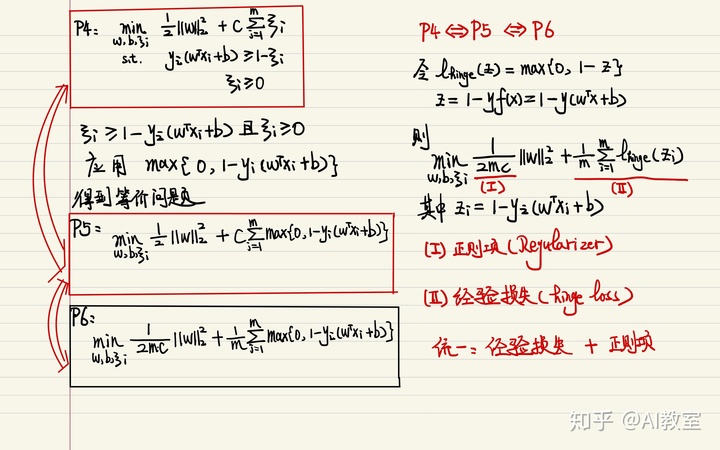 P4: min w,b,ξi 1/2 ||w||₂² + C Σ_{i=1}^m ξi
s.t. yi(wᵀxi+b) ≥ 1-ξi
ξi ≥ 0
ξi ≥ 1-yi(wᵀxi+b) 且 ξi ≥ 0
应用 max{0, 1-yi(wᵀxi+b)}
得到等价问题
P5: min w,b,ξi 1/2 ||w||₂² + C Σ_{i=1}^m max{0, 1-yi(wᵀxi+b)}
P6:
min w,b,ξi 1/(2mC) ||w||₂² + 1/m Σ_{i=1}^m max{0, 1-yi(wᵀxi+b)}
P4 ⇔ P5 ⇔ P6
令 lhinge(z) = max{0, 1-z}
z = 1-yf(x) = 1-y(wᵀx+b)
则
min w,b,ξi 1/(2mC) ||w||₂² + 1/m Σ_{i=1}^m lhinge(zi)
(I) (II)
其中 zi = 1-yi(wᵀxi+b)
(I) 正则项 (Regularizer)
(II) 经验损失 (hinge loss)
统一: 经验损失 + 正则项
知乎 @AI教室